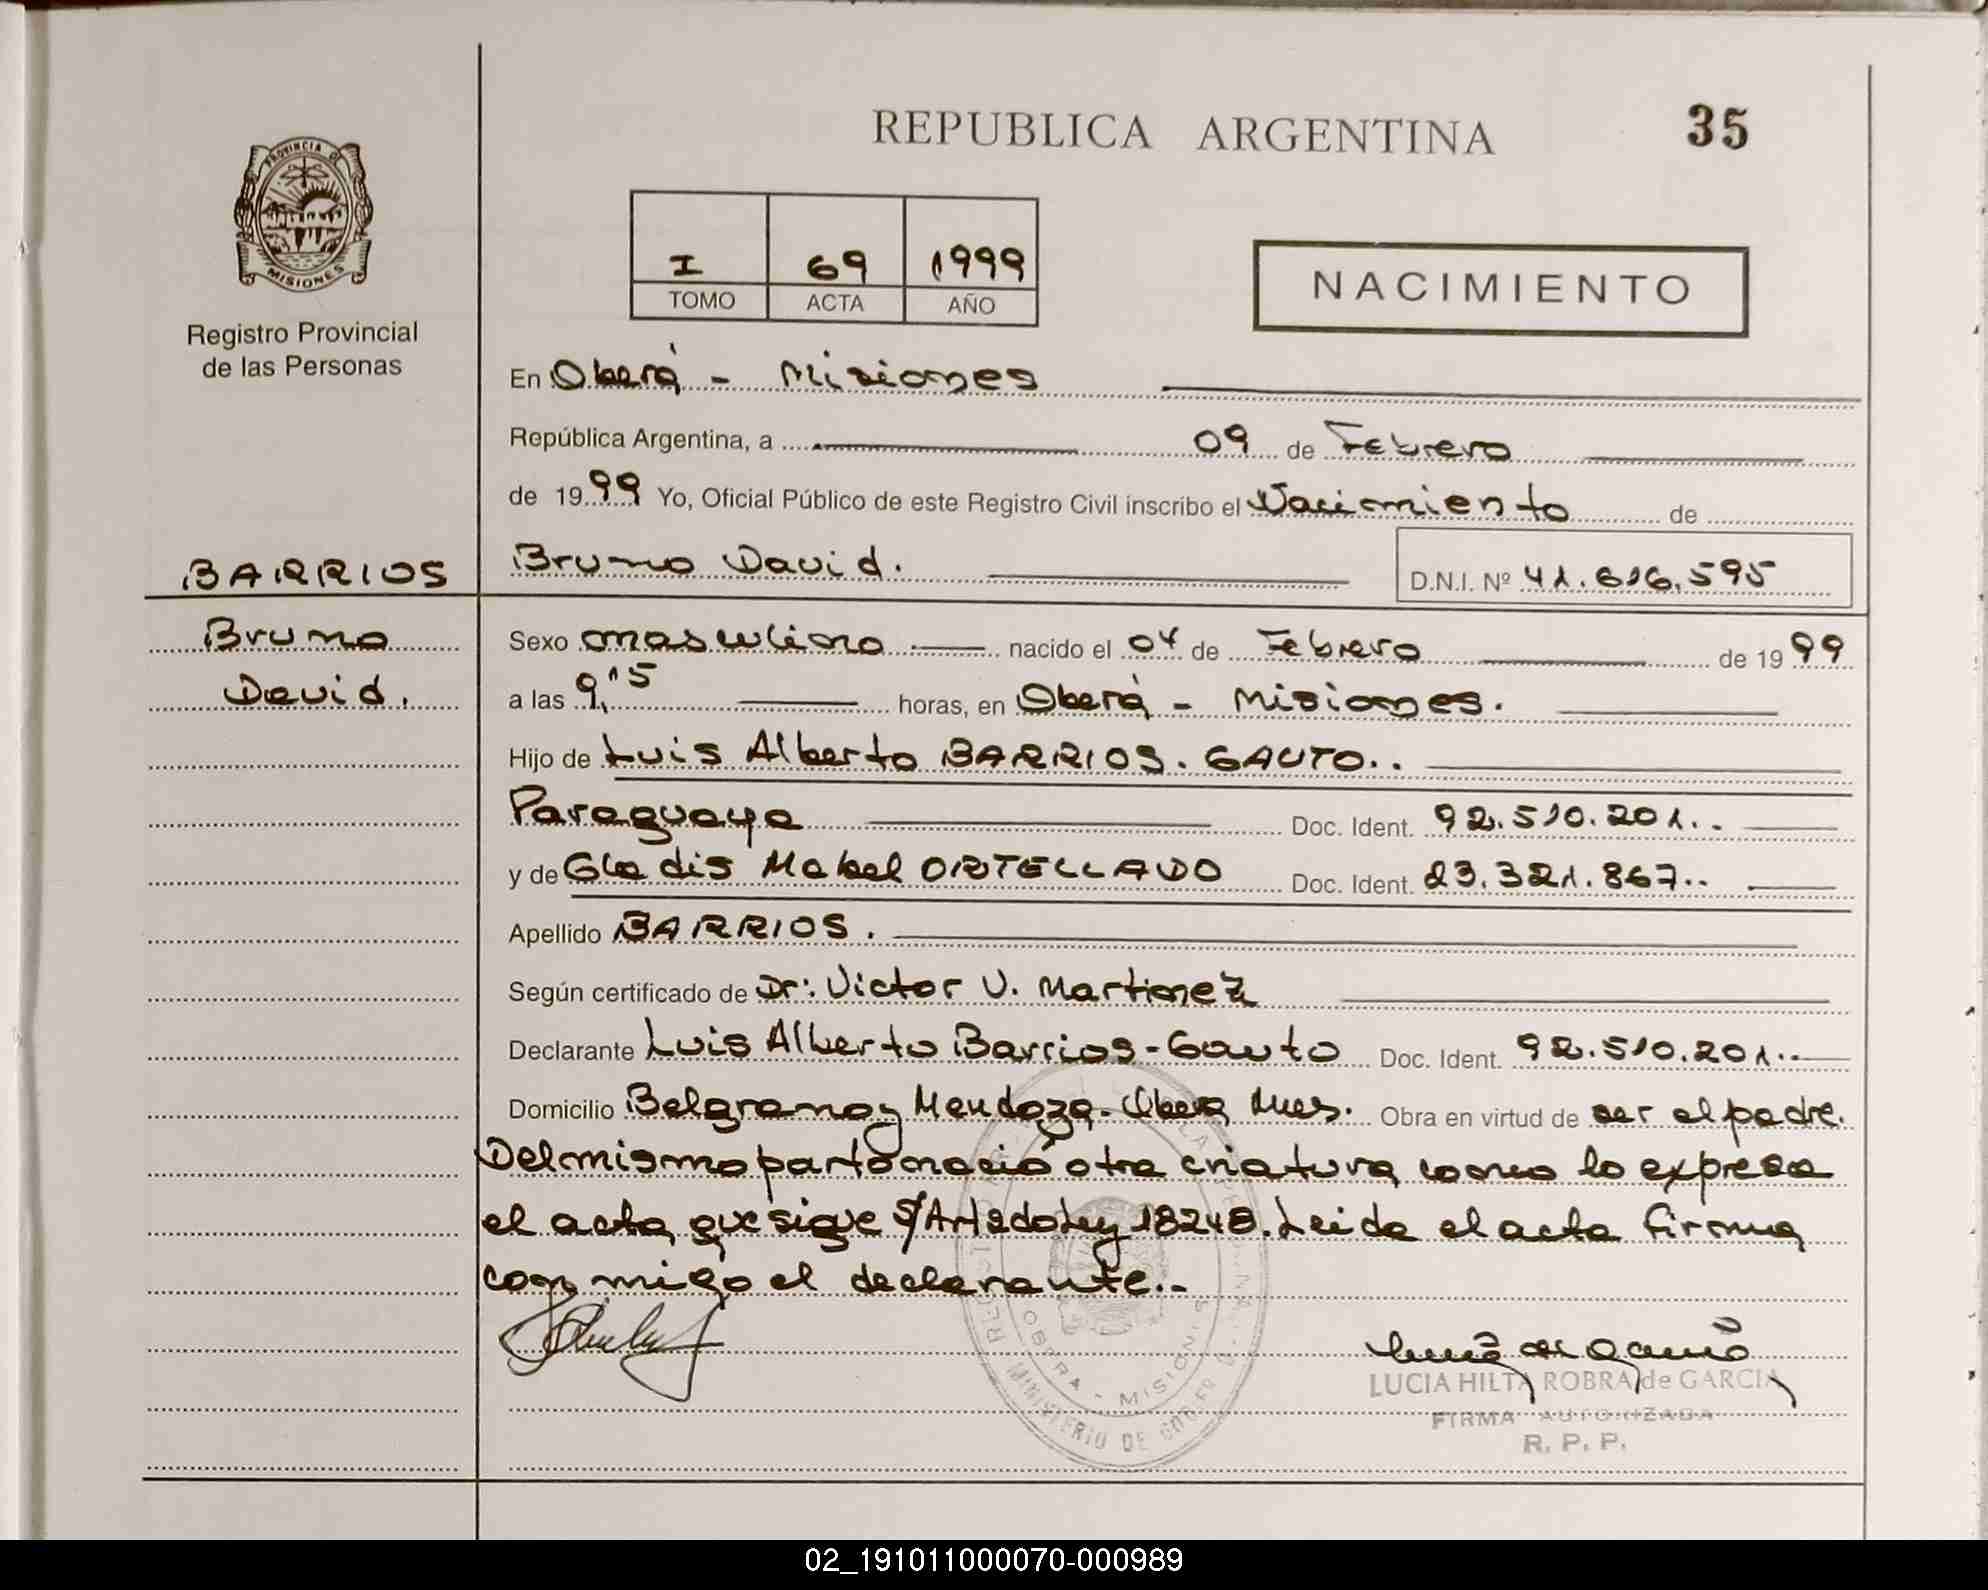 REPUBLICA ARGENTINA
35
PROVINCIA DE
MISIONES
Registro Provincial
de las Personas
I 69 1999
TOMO ACTA AÑO
NACIMIENTO
En Oberá - Misiones
República Argentina, a 09 de Febrero
de 1999 Yo, Oficial Público de este Registro Civil inscribo el Nacimiento de
BARRIOS
Bruno David.
Bruno David. D.N.I. Nº 41.616.595
Sexo masculino nacido el 04 de Febrero de 1999
a las 9,15 horas, en Oberá - Misiones.
Hijo de Luis Alberto BARRIOS. GAUTO..
Paraguaya Doc. Ident. 92.510.201..
y de Gladis Mabel ORTELLADO Doc. Ident. 23.321.867..
Apellido BARRIOS.
Según certificado de Dr: Victor V. Martinez
Declarante Luis Alberto Barrios-Gauto Doc. Ident. 92.510.201..
Domicilio Belgrano y Mendoza. Oberá Mnes. Obra en virtud de ser el padre.
Del mismo parto nació otra criatura como lo expresa
el acta que sigue s/Art 2do Ley 18248. Leida el acta firma
conmigo el declarante..
OBERA - MISIONES
MINISTERIO DE GOBIERNO
LUCIA HILTA ROBRA de GARCIA
FIRMA AUTORIZADA
R. P. P.
02_191011000070-000989